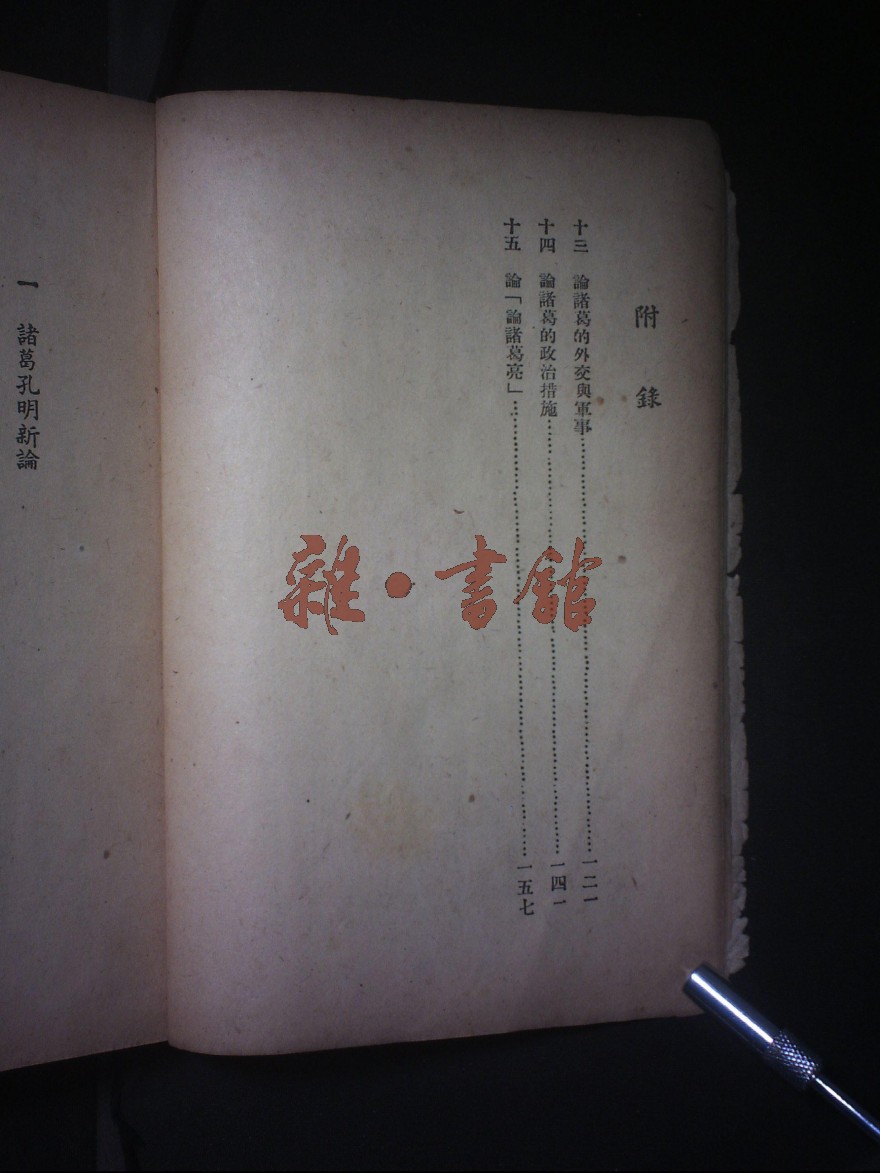 附錄
十三 論諸葛的外交與軍事……一二一
十四 論諸葛的政治措施……一四一
十五 論「論諸葛亮」……一五七
一 諸葛孔明新論
雜·書館